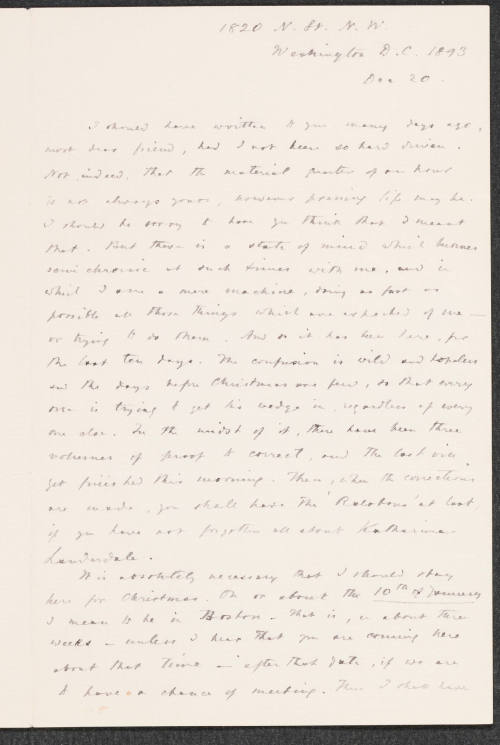 1820 N. St. N. W.
Washington D.C. 1893
Dec 20.
I should have written to you many days ago,
most dear friend, had I not been so hard driven.
Not, indeed, that the material quarter of an hour
is not always yours, however pressing life may be.
I should be sorry to have you think that I meant
that. But there is a state of mind which becomes
semi chronic at such times with me, and in
which I am a mere machine, doing as fast as
possible all those things which are expected of me —
or trying to do them. And so it has been here, for
the last ten days. The confusion is wild and hopeless
and the days before Christmas are few, so that every
one is trying to get his wedge in, regardless of every
one else. In the midst of it, there have been three
volumes of proof to correct, and the last was
get finished this morning. Then, when the corrections
are made, you shall have the 'Ralstons' at last,
if you have not forgotten all about Katharine
Lauderdale.
It is absolutely necessary that I should stay
here for Christmas. On or about the 10th of January
I mean to be in Boston – that is, in about three
weeks – unless I hear that you are coming here
about that time – after that date, if we are
to have a chance of meeting. Then I shall have